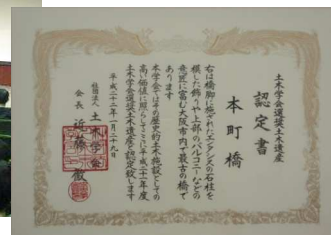 土木学会選奨土木遺産
認定書
本町橋
右は橋脚に施されたルネサンスの石柱を
模した飾りや上部のバルコニーなどの
意匠に富む大阪市内で最古の橋で
あります
本学会はその歴史的土木施設としての
高い価値に照らしてここに平成二十一年度
土木学会選奨土木遺産と認定致します
平成二十二年一月二十九日
社団法人 土木学会
会長 近藤 徹